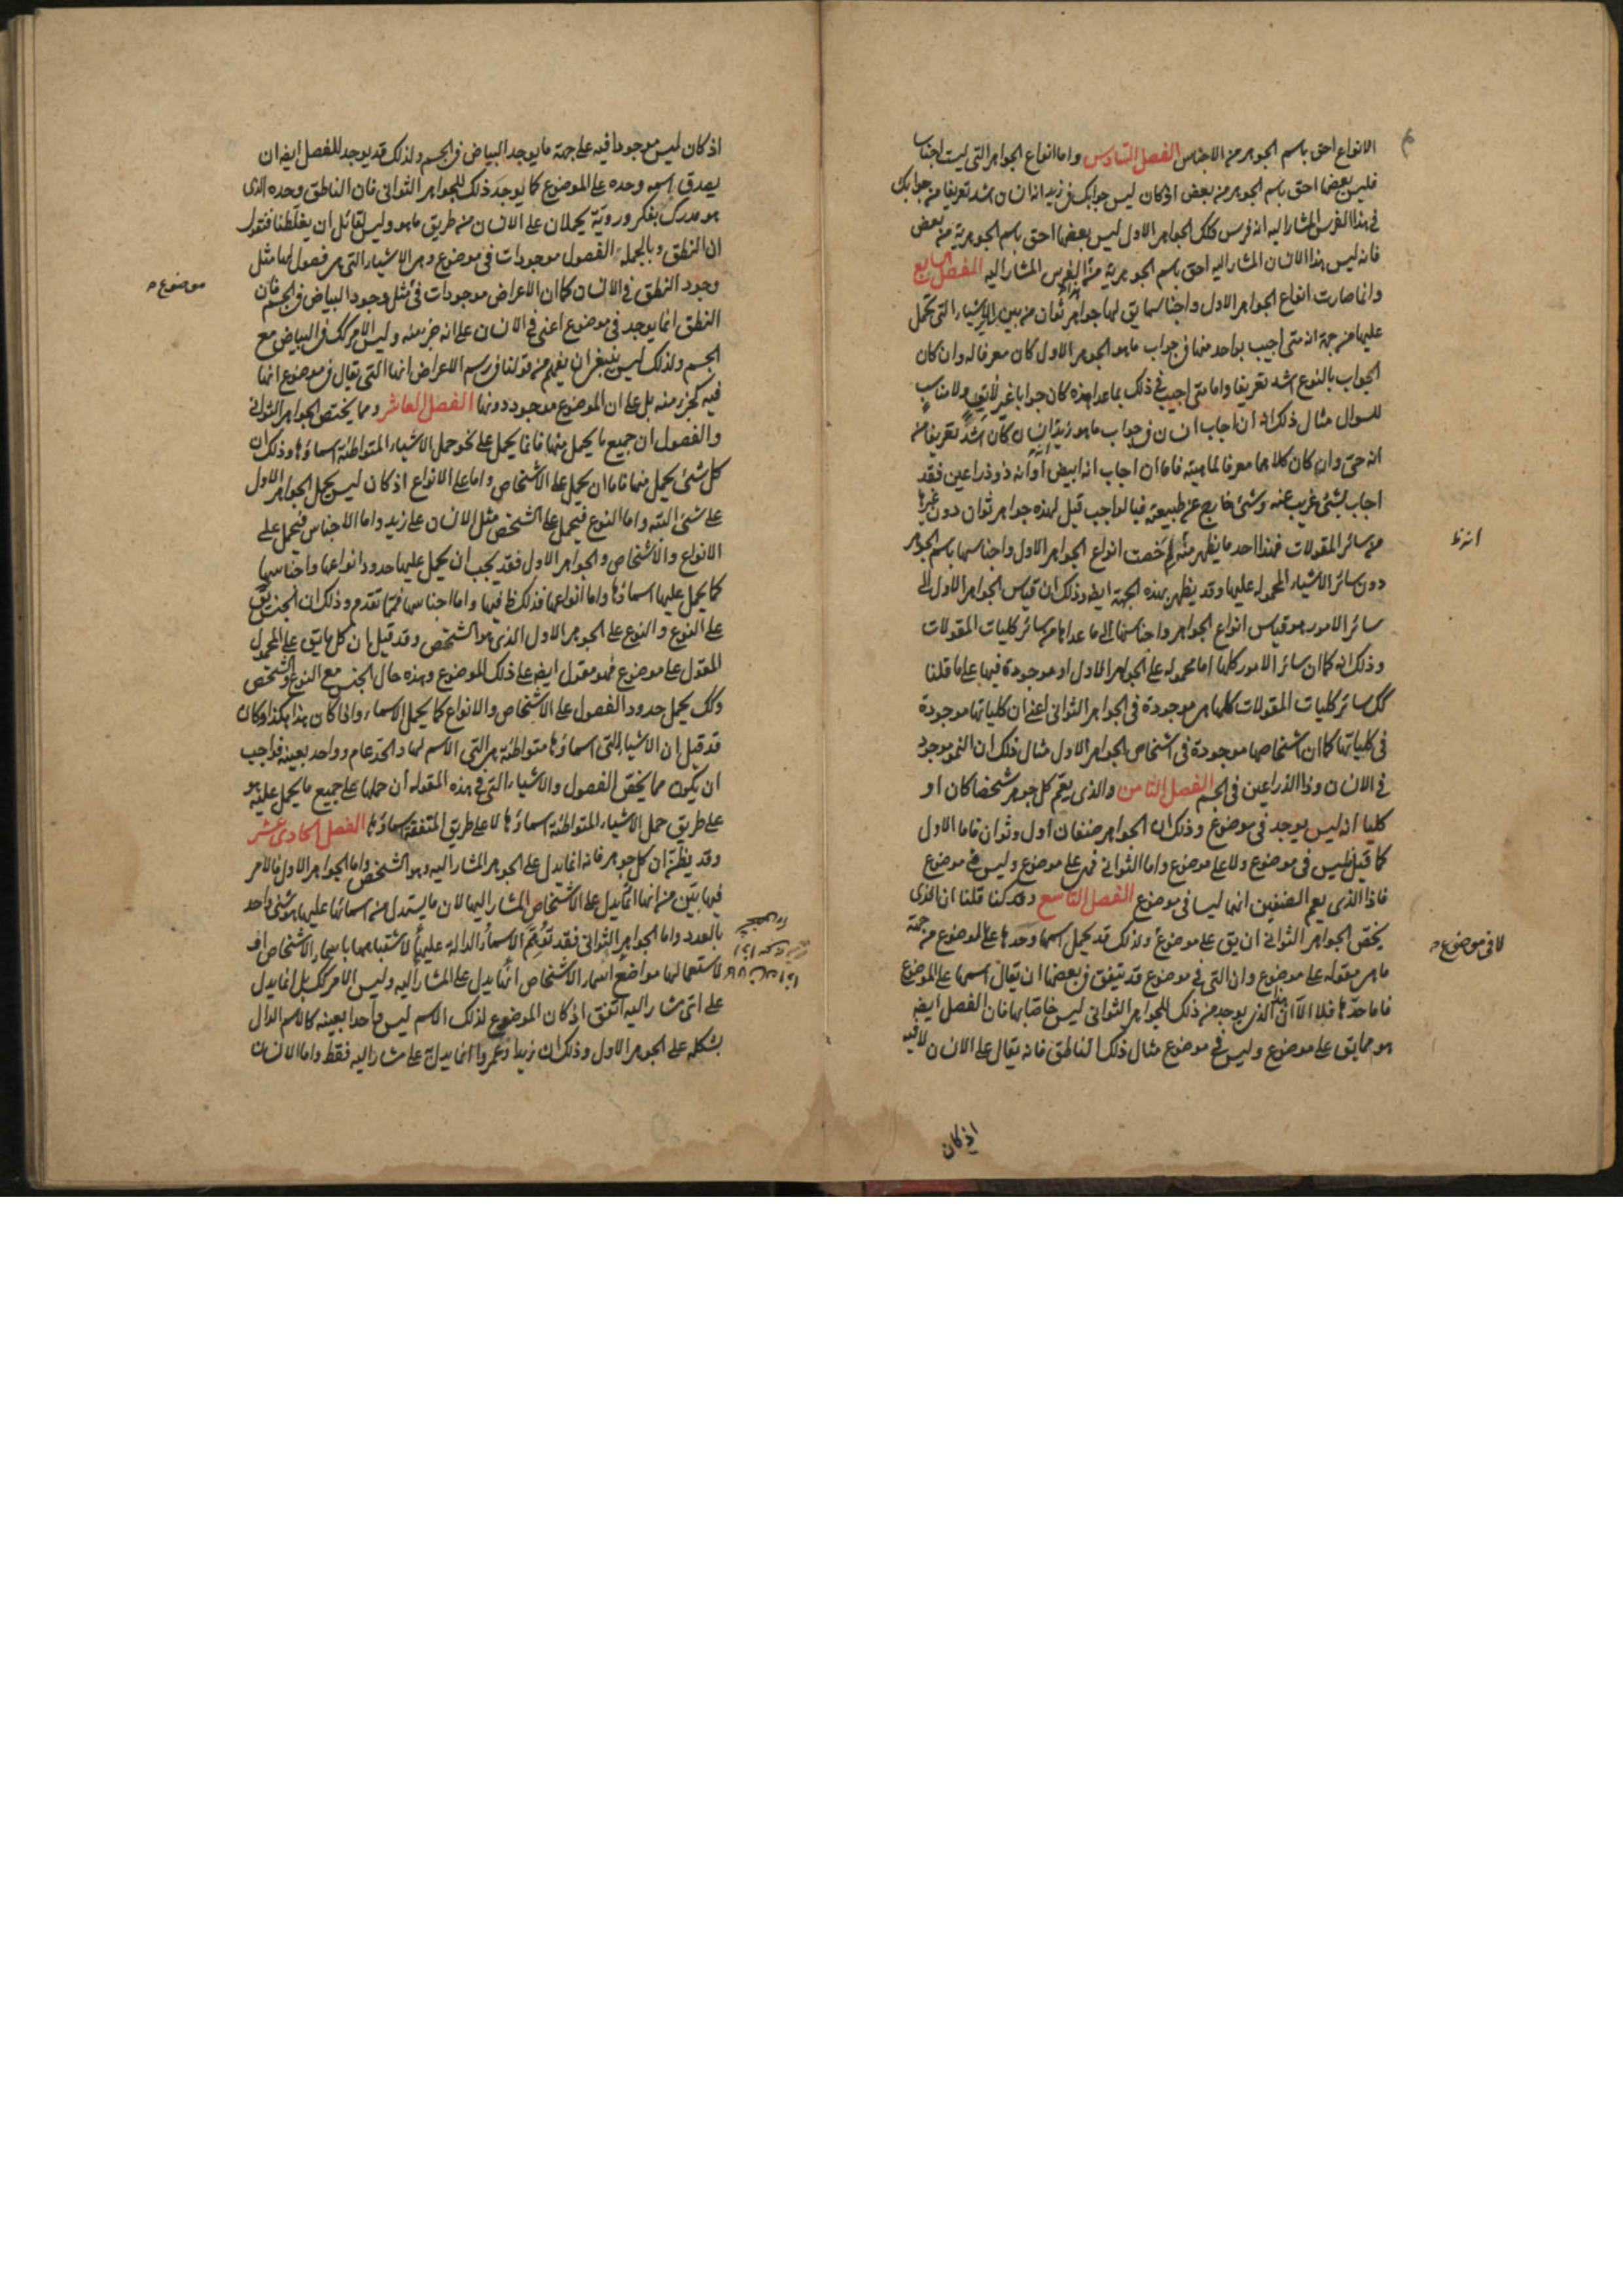 الانواع احق باسم الجوهر من الاجناس الفصل السادس واما انواع الجواهر التى ليست اجناسا
فليس بعضها احق باسم الجوهر من بعض اذ كان ليس جوابك فى زيد انه انسان اشد تعريفا من جوابك
فى هذا الفرس المشار اليه انه فرس وكك الجواهر الاول ليس بعضها احق باسم الجوهرية من بعض
فانه ليس هذا الانسان المشار اليه احق باسم الجوهرية من هذا الفرس المشار اليه الفصل السابع
وانما صارت انواع الجواهر الاول واجناسها يق لها جواهر ثوان من بين سائر الاشياء التى تحمل
عليها من جهة انه متى اجيب بواحد منها فى جواب ما هو الجوهر الاول كان معرفا له وان كان
الجواب بالنوع اشد تعريفا واما متى اجيب فى ذلك بما عدا هذه كان جوابا غير لائق ولا مناسب
للسوال مثال ذلك انه ان اجاب انسان فى جواب ما هو زيد انه انسان كان اشد تعريفا من
انه حى وان كان كلاهما معرفا لماهيته فاما ان اجاب انه ابيض او انه ذو ذراعين فقد
اجاب بشئ غريب عنه وشئ خارج عن طبيعته فبالواجب قيل لهذه جواهر ثوان دون غيرها
من سائر المقولات فهذا احد ما يظهر منه لم خصت انواع الجواهر الاول واجناسها باسم الجوهر
دون سائر الاشياء المحمولة عليها وقد يظهر بهذه الجهة ايضا وذلك ان قياس الجواهر الاول الى
سائر الامور هو قياس انواع الجواهر واجناسها الى ما عداها من سائر كليات المقولات
وذلك انه كما ان سائر الامور كلها اما محمولة على الجواهر الاول او موجودة فيها على ما قلنا
كك سائر كليات المقولات كلها هى موجودة فى الجواهر الثوانى اعنى ان كلياتها موجودة
فى كلياتها كما ان اشخاصها موجودة فى اشخاص الجواهر الاول مثال ذلك ان النمو موجود
فى الانسان وذا الذراعين فى الجسم الفصل الثامن والذى يعم كل جوهر شخصا كان او
كليا انه ليس يوجد فى موضوع وذلك ان الجواهر صنفان اول وثوان فاما الاول
كما قيل فليس فى موضوع ولا على موضوع واما الثوانى فهى على موضوع وليس فى موضوع
فاذا الذى يعم الصنفين انهما ليسا فى موضوع الفصل التاسع وقد كنا قلنا ان الذى
يخص الجواهر الثوانى ان يق على موضوع ولذلك قد يحمل اسمها وحدها على الموضوع من جهة
ما هى مقولة على موضوع وان التى فى موضوع قد يتفق فى بعضها ان يقال اسمها على الموضوع
فاما حدها فلا الا ان هذا الذى يوجد من ذلك للجواهر الثوانى ليس خاصا بها فان الفصل ايضا
هو مما يق على موضوع وليس فى موضوع مثال ذلك الناطق فانه يقال على الانسان لا فيه
لا فى موضوع
اذ كان
اذ كان ليس موجودا فيه على جهة ما يوجد البياض فى الجسم ولذلك قد يوجد للفصل ايضا ان
يصدق اسمه وحده على الموضوع كما يوجد ذلك للجواهر الثوانى فان الناطق وحده الذى
هو مدرك بفكر وروية يحملان على الانسان من طريق ما هو وليس لقائل ان يغلطنا فيقول
ان النطق وبالجملة الفصول موجودات فى موضوع وهى الاشياء التى هى فصول لها مثل
وجود النطق فى الانسان كما ان الاعراض موجودات فى مثل وجود البياض فى الجسم فان
النطق انما يوجد فى موضوع اعنى فى الانسان على انه جزء منه وليس الامر كك فى البياض مع
الجسم ولذلك ليس ينبغى ان يفهم من قولنا فى رسم الاعراض انها التى يقال فى موضوع انها
فيه كجزء منه بل على ان الموضوع موجود دونها الفصل العاشر ومما يختص الجواهر الثوانى
والفصول ان جميع ما يحمل منها فانما يحمل على نحو حمل الاشياء المتواطئة اسماؤها وذلك ان
كل شئ يحمل منها فاما ان يحمل على الاشخاص واما على الانواع اذ كان ليس يحمل الجواهر الاول
على شئ البتة واما النوع فيحمل على الشخص مثل الانسان على زيد واما الاجناس فيحمل على
الانواع والاشخاص والجواهر الاول فقد يجب ان يحمل عليها حدود انواعها واجناسها
كما يحمل عليها اسماؤها واما انواعها فذلك ظ فيها واما اجناسها فمما تقدم وذلك ان الجنس يق
على النوع والنوع على الجوهر الاول الذى هو الشخص وقد قيل ان كل ما يق على المحمول
المقول على موضوع فهو مقول ايضا على ذلك الموضوع وهذه حال الجنس مع النوع والشخص
وكك يحمل حدود الفصول على الاشخاص والانواع كما يحمل الاسماء واذا كان هذا هكذا وكان
قد قيل ان الاشياء التى اسماؤها متواطئة هى التى الاسم لها والحد عام وواحد بعينه فواجب
ان يكون مما يخص الفصول والاشياء التى فى هذه المقولة ان حملها على جميع ما يحمل عليه هو
على طريق حمل الاشياء المتواطئة اسماؤها لا على طريق المتفقة اسماؤها الفصل الحادى عشر
وقد يظن ان كل جوهر فانه انما يدل على الجوهر المشار اليه وهو الشخص واما الجواهر الاول فالامر
فيها بين من انها انما يدل على الاشخاص المشار اليها لان ما يستدل من اسمائها عليها هو شئ واحد
بالعدد واما الجواهر الثوانى فقد توهم الاسماء الدالة عليها لاشتباهها باسماء الاشخاص او
لاستعمالها مواضع اسماء الاشخاص انما يدل على المشار اليه وليس الامر كك بل انما يدل
على اى مشار اليه اتفق اذ كان الموضوع لذلك الاسم ليس واحدا بعينه كالاسم الدال
بشكله على الجوهر الاول وذلك ان زيدا وعمروا انما يدل على مشار اليه فقط واما الانسان
موضوع